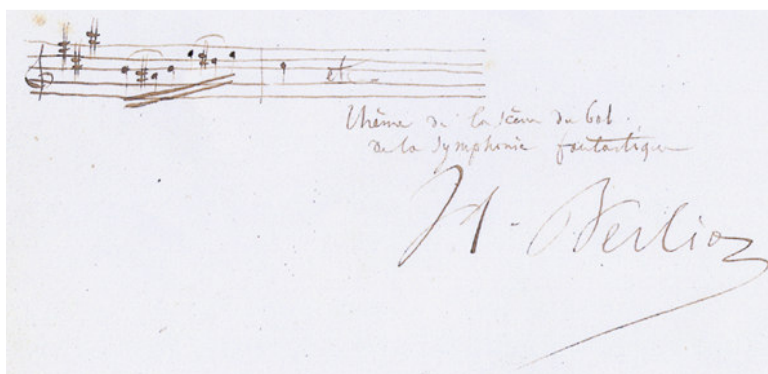 etc
thême de la scène du bal.
de la Symphonie fantastique
H. Berlioz